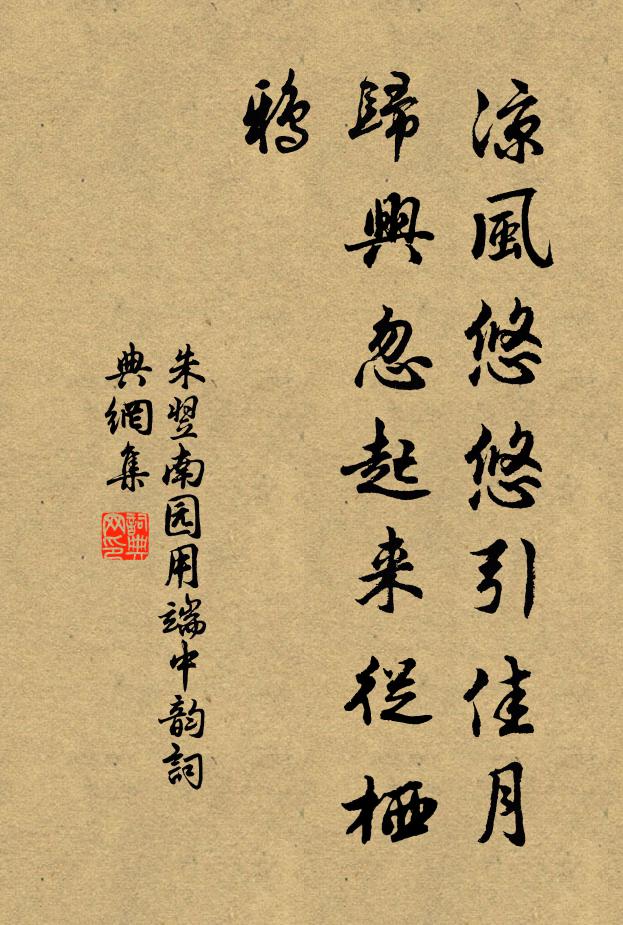 凉風悠悠引佳月
歸興忽起来從栖
鴉
朱翌南园用端中韵詞
典網集
詞典网印